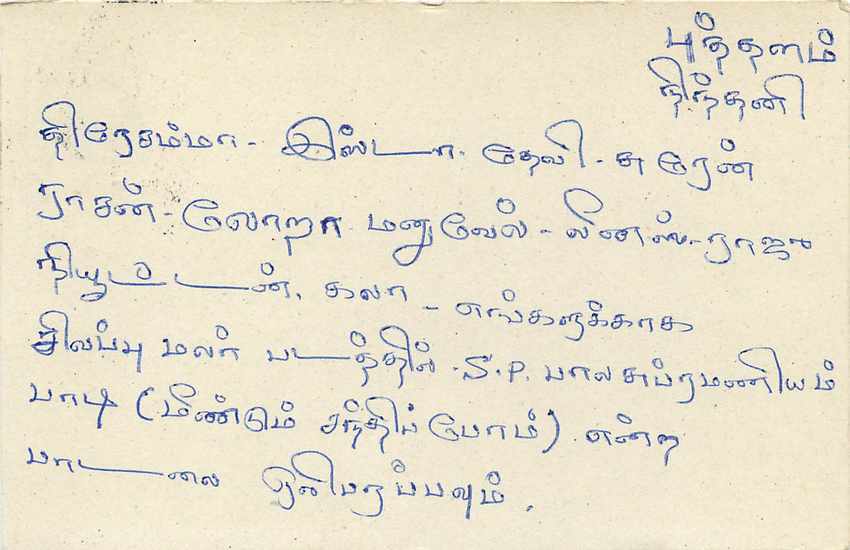 புத்தளம்
நிந்தனி
திரேசம்மா - இஸ்டா - தேவி - சுரேன்
ராசன் - லோறா மனுவேல் - லீனஸ் - ராஜு
நியூட்டன், கலா - எங்களுக்காக
சிவப்பு மலர் படத்தில் S.P. பாலசுப்ரமணியம்
பாடி (மீண்டும் சந்திப்போம்) என்ற
பாடலை ஒலிபரப்பவும்.